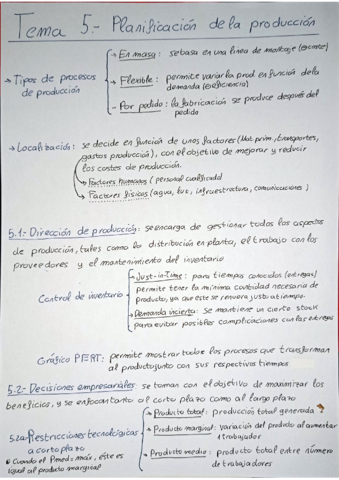 Tema 5.- Planificación de la producción
→ Tipos de procesos de producción
→ En masa: se basa en una linea de montaje (coste)
→ Flexible: permite variar la prod en función de la demanda (eficiencia)
→ Por pedido: la fabricación se produce después del pedido
→ Localización: se decide en función de unos factores (Mat prim, transportes, gastos producción), con el objetivo de mejorar y reducir los costes de producción.
→ Factores humanos (personal cualificado)
→ Factores físicos (agua, luz, infraestructura, comunicaciones)
5.1- Dirección de producción: se encarga de gestionar todos los aspectos
de producción, tales como la distribución en planta, el trabajo con los
proveedores y el mantenimiento del inventario
Control de inventario
→ Just-in-Time: para tiempos conocidos (entregas)
permite tener la mínima cantidad necesaria de
producto, ya que este se renueva justo a tiempo.
→ Demanda incierta: se mantiene un cierto stock
para evitar posibles complicaciones con las entregas
Gráfico PERT: permite mostrar todos los procesos que transforman
al producto junto con sus respectivos tiempos
5.2- Decisiones empresariales: se toman con el objetivo de maximizar los
beneficios, y se enfocan tanto al corto plazo como al largo plazo
5.2a- Restricciones tecnológicas
a corto plazo
Cuando el Pmed: máx, este es
igual al producto marginal
→ Producto total: producción total generada
→ Producto marginal: variación del producto al aumentar
1 trabajador
→ Producto medio: producto total entre número
de trabajadores